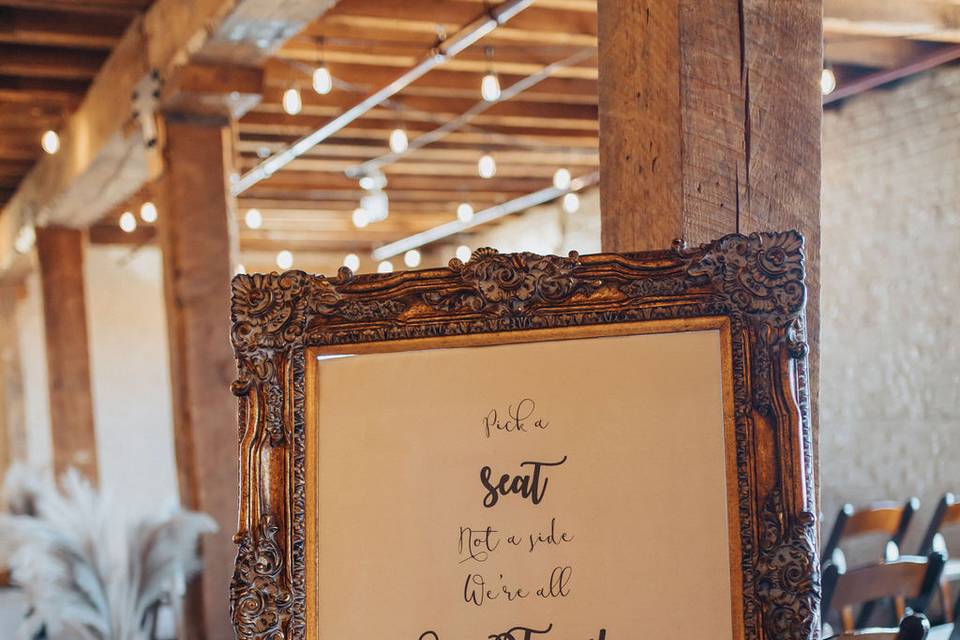 Pick a
Seat
Not a side
We're all